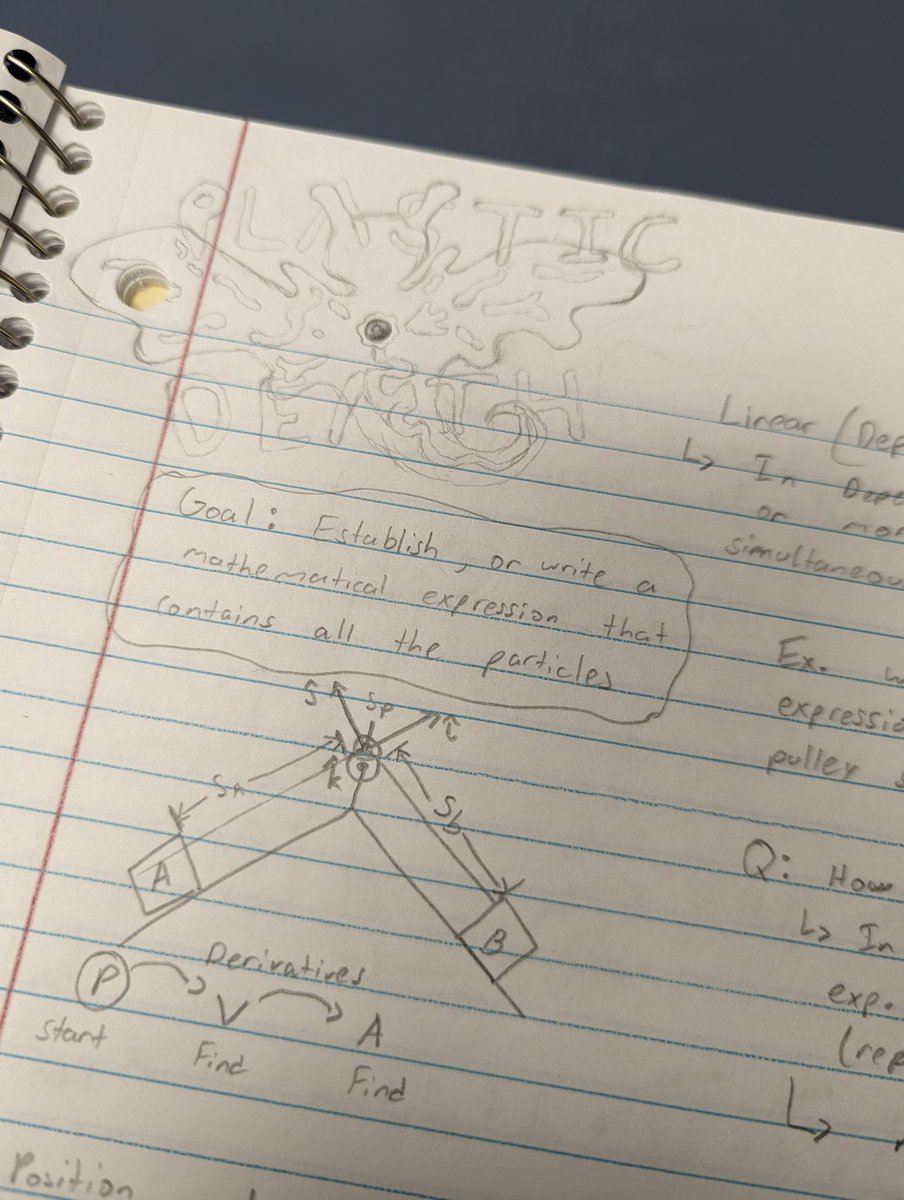 PLASTIC
DEATH
Goal: Establish, or write a
mathematical expression that
contains all the particles
ĵ
Sp
î
k
SA
Sb
A
B
P
Derivatives
V
A
Start
Find
Find
Position
Linear (Dep
↳ In Depe
or mor
simultaneou
Ex. w
expressio
pulley s
Q: How
↳ In
exp.
(rep
↳